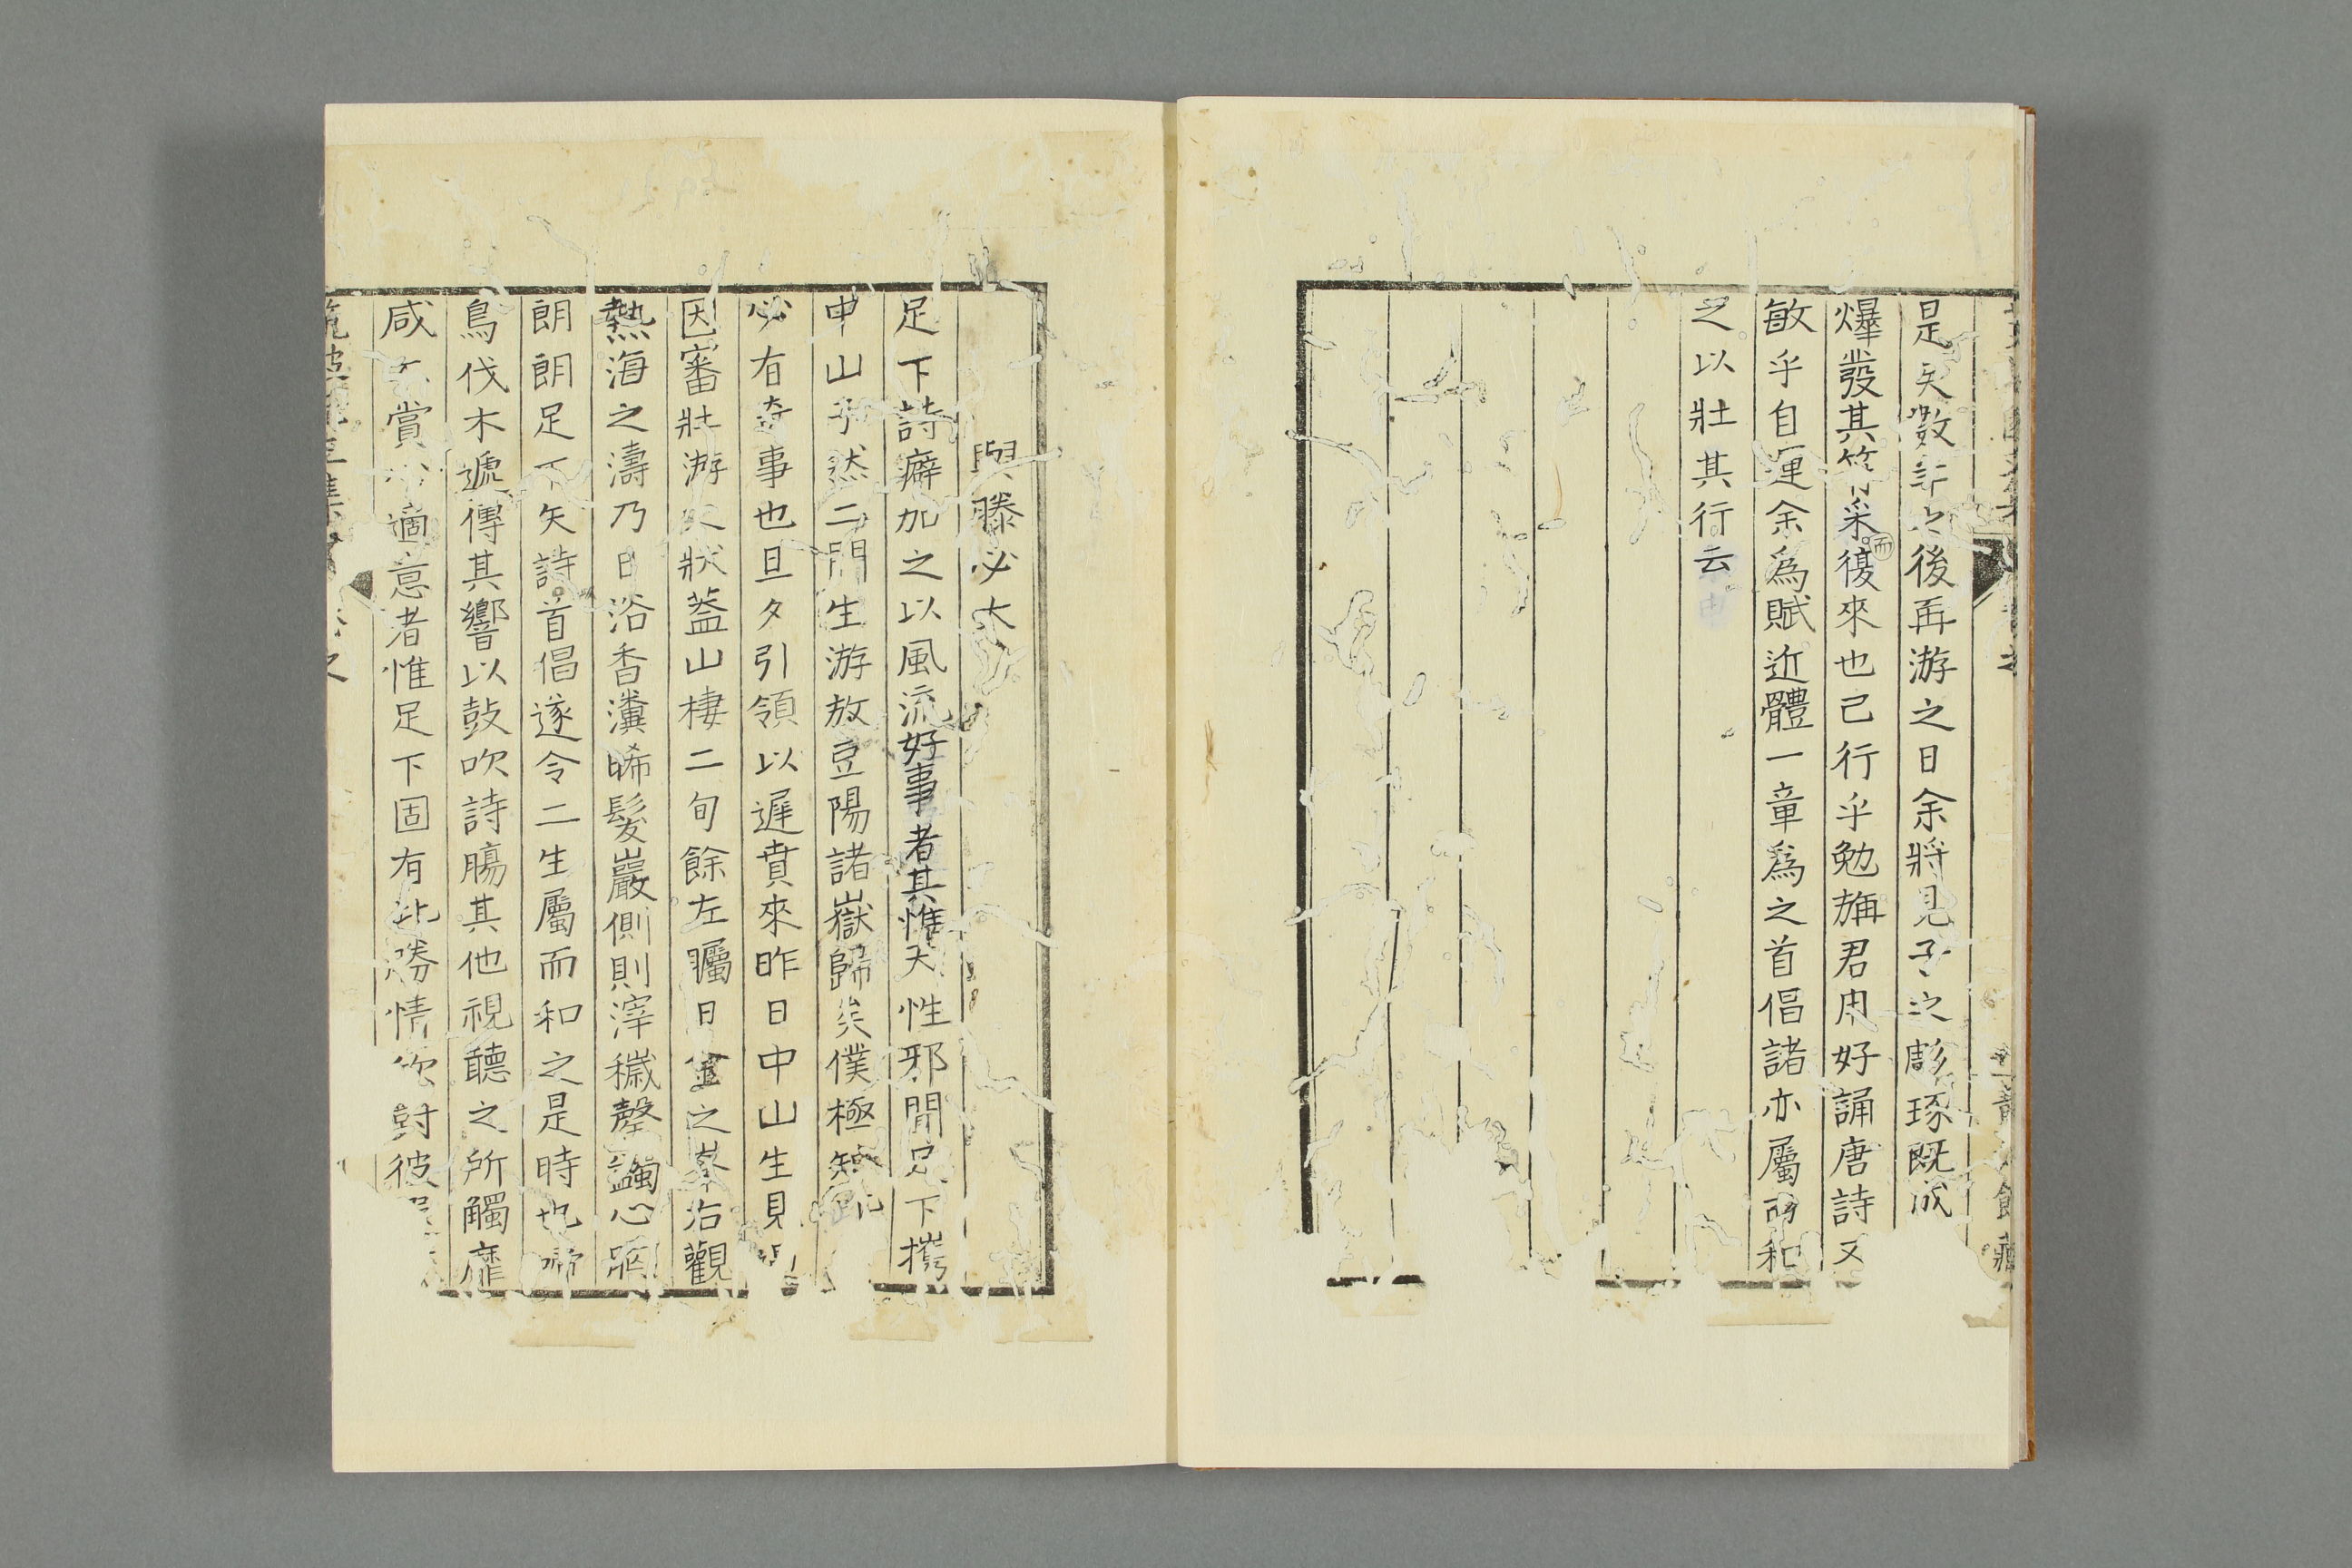 是矣數年之後再游之日余將見子之彫琢既成
爆發其符采而復來也已行乎勉旃君周好誦唐詩又
敏乎自運余爲賦近體一章爲之首倡諸亦屬而和
之以壯其行云
與滕必大
足下詩癖加之以風流好事者其惟天性邪聞足下攜
中山子然二門生游放豆陽諸嶽歸矣僕極知此
必有奇事也旦夕引領以遲賁來昨日中山生見
因審壯游之狀蓋山棲二旬餘左矚日金之峯右觀
熱海之濤乃日浴香瀵晞髮巖側則滓穢罄蠲心
朗朗足下矢詩首倡遂令二生屬而和之是時也
鳥伐木遞傳其響以鼓吹詩腸其他視聽之所觸靡
咸賞心適意者惟足下固有此勝情以對彼